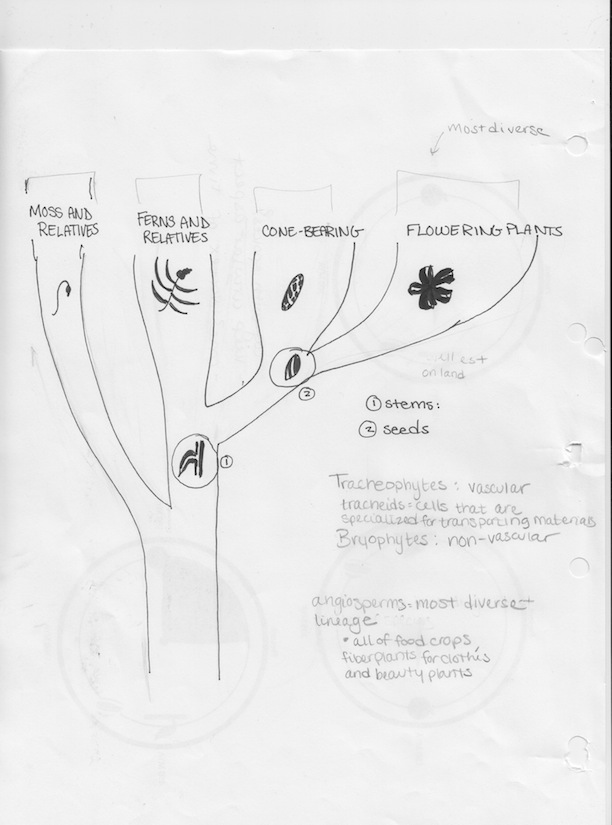 most diverse
MOSS AND
RELATIVES
FERNS AND
RELATIVES
CONE-BEARING
FLOWERING PLANTS
on land
②
① stems:
② seeds
①
Tracheophytes: vascular
tracheids = cells that are
specialized for transporting materials
Bryophytes: non-vascular
angiosperms = most diverse
lineage
• all of food crops,
fiber plants for clothes
and beauty plants